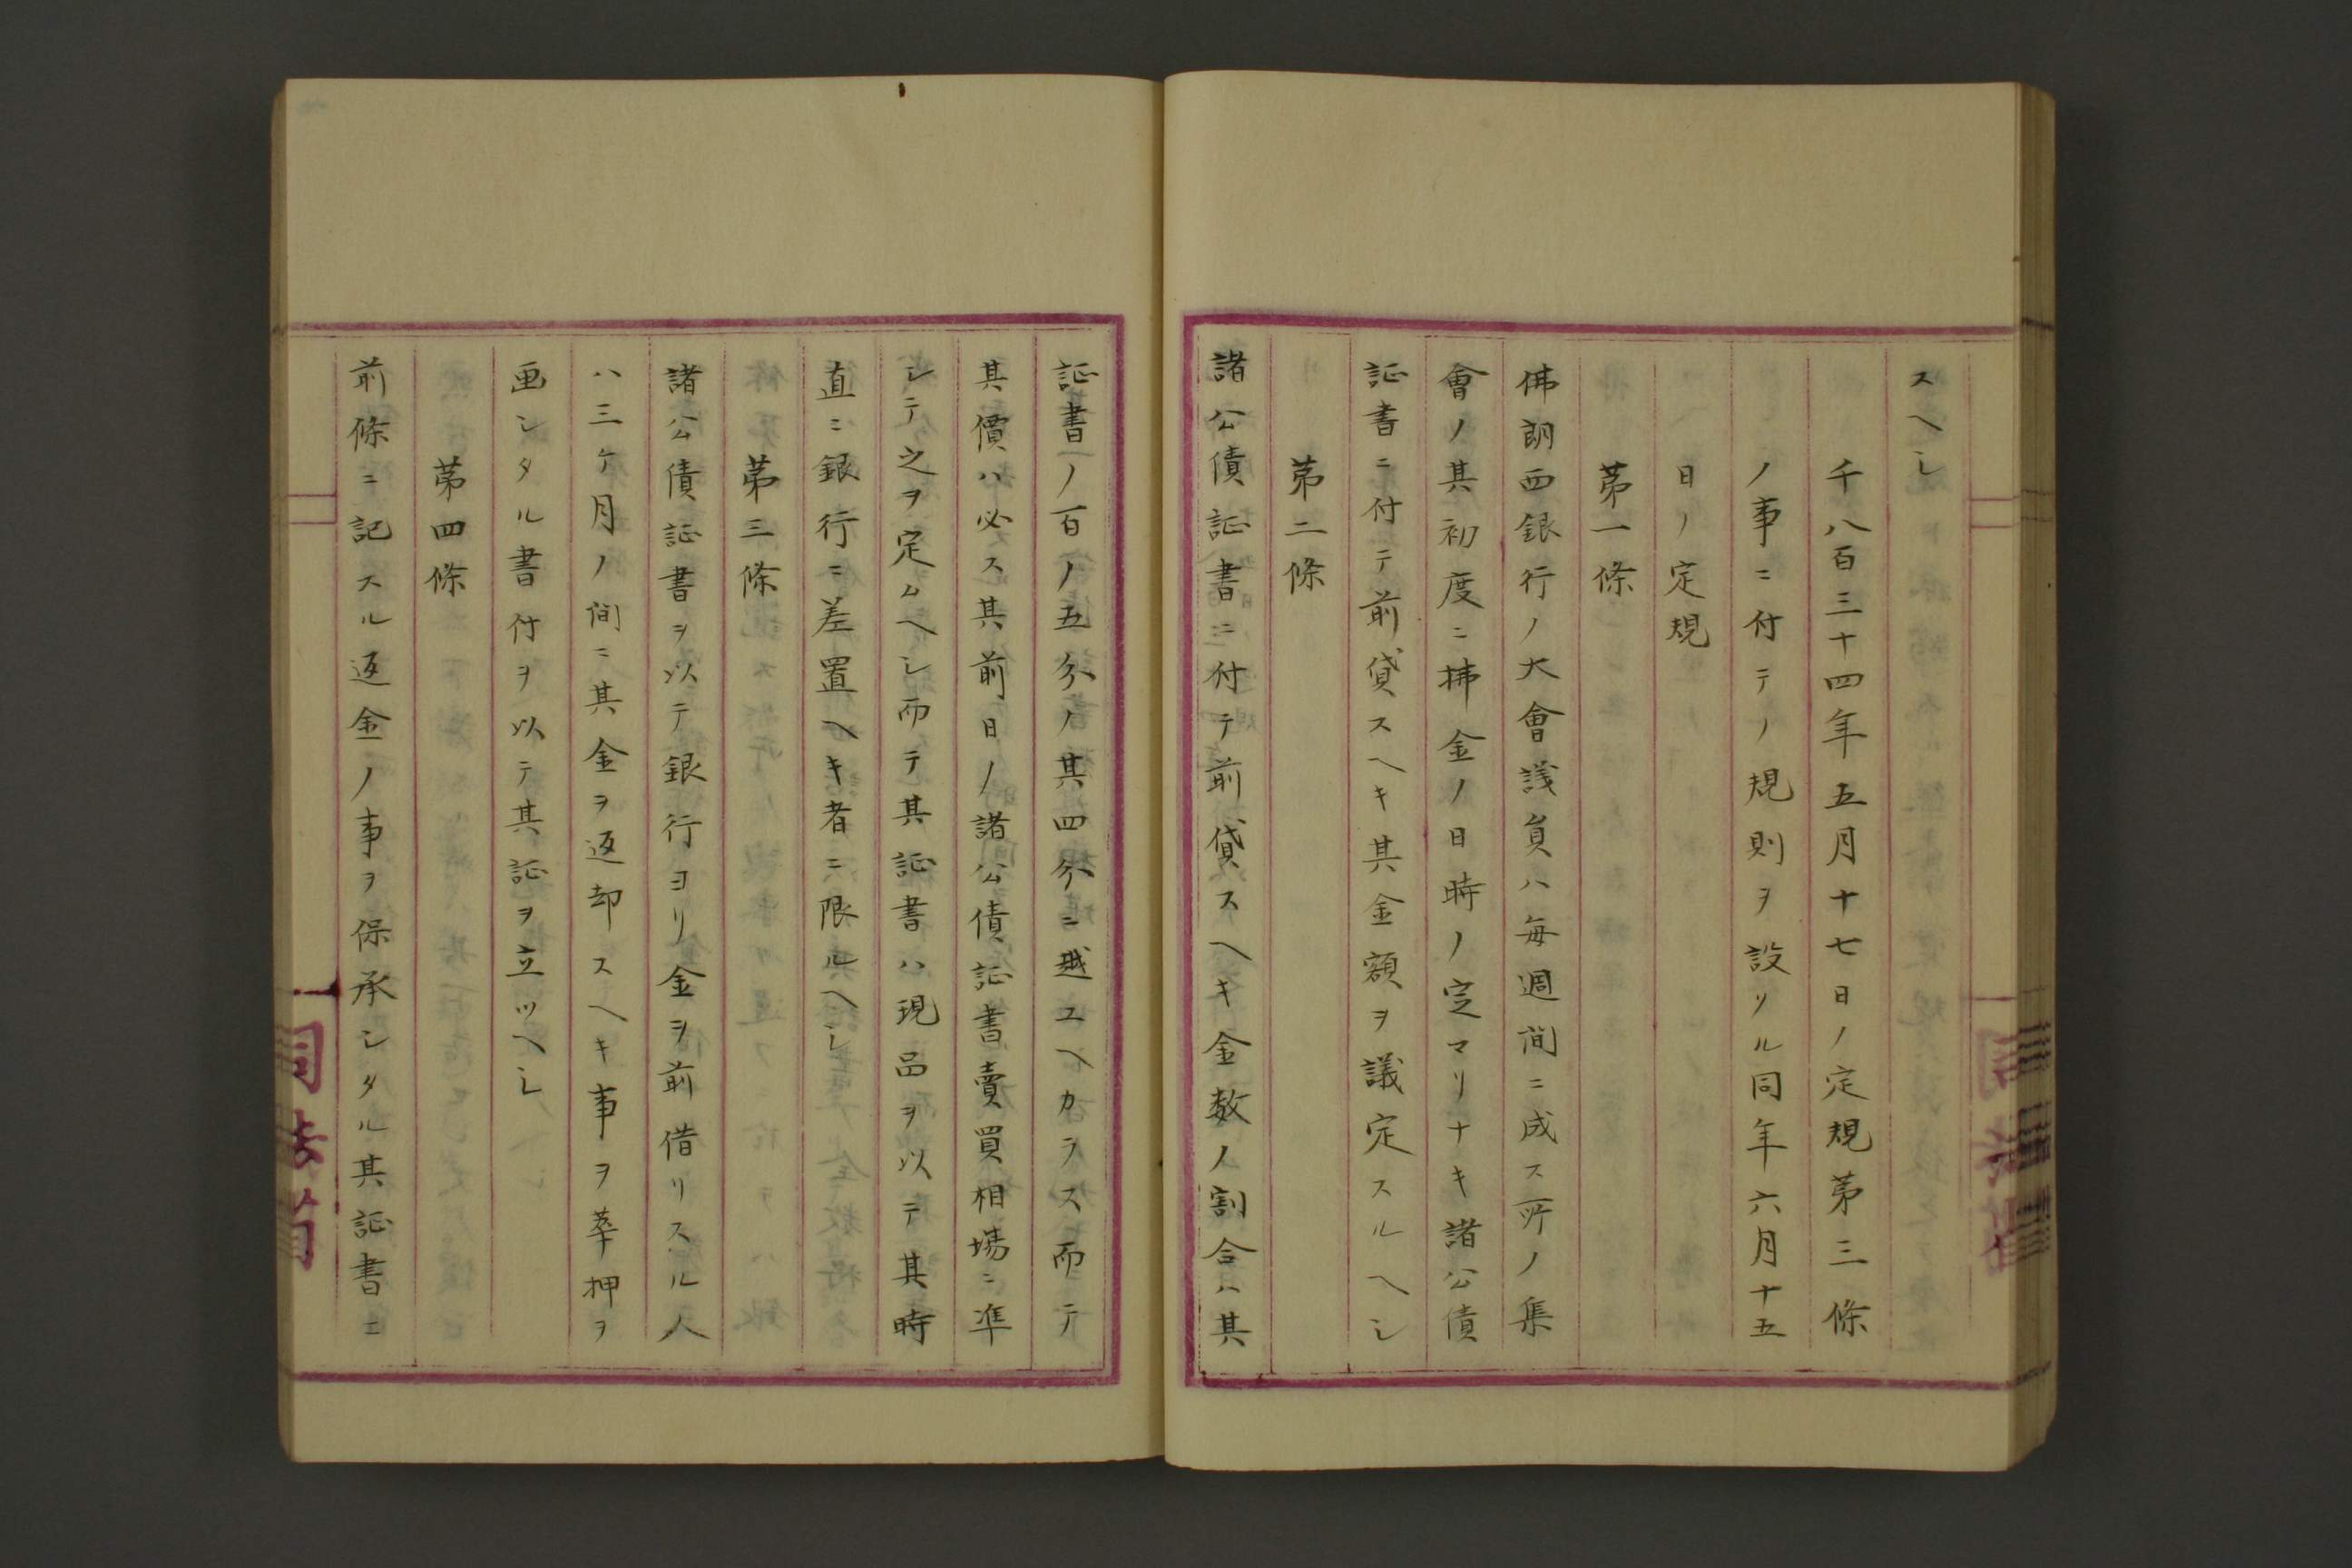 スヘシ
千八百三十四年五月十七日ノ定規第三條
ノ事ニ付テノ規則ヲ設リル同年六月十五
日ノ定規
第一條
佛朗西銀行ノ大會議員ハ毎週間ニ成ス所ノ集
會ノ其初度ニ拂金ノ日時ノ定マリナキ諸公債
証書ニ付テ前貸スヘキ其金額ヲ議定スルヘシ
第二條
諸公債証書ニ付テ前貸スヘキ金数ノ割合ハ其
証書ノ百ノ五分ノ其四分ニ越ユヘカラス而テ
其價ハ必ス其前日ノ諸公債証書賣買相場ニ準
シテ之ヲ定ムヘシ而テ其証書ハ現品ヲ以テ其時
直ニ銀行ニ差置ヘキ者ニ限ルヘシ
第三條
諸公債証書ヲ以テ銀行ヨリ金ヲ前借リスル人
ハ三ケ月ノ間ニ其金ヲ返却スヘキ事ヲ華押ヲ
画シタル書付ヲ以テ其証ヲ立ツヘシ
第四條
前條ニ記スル返金ノ事ヲ保承シタル其証書ニ
司法省